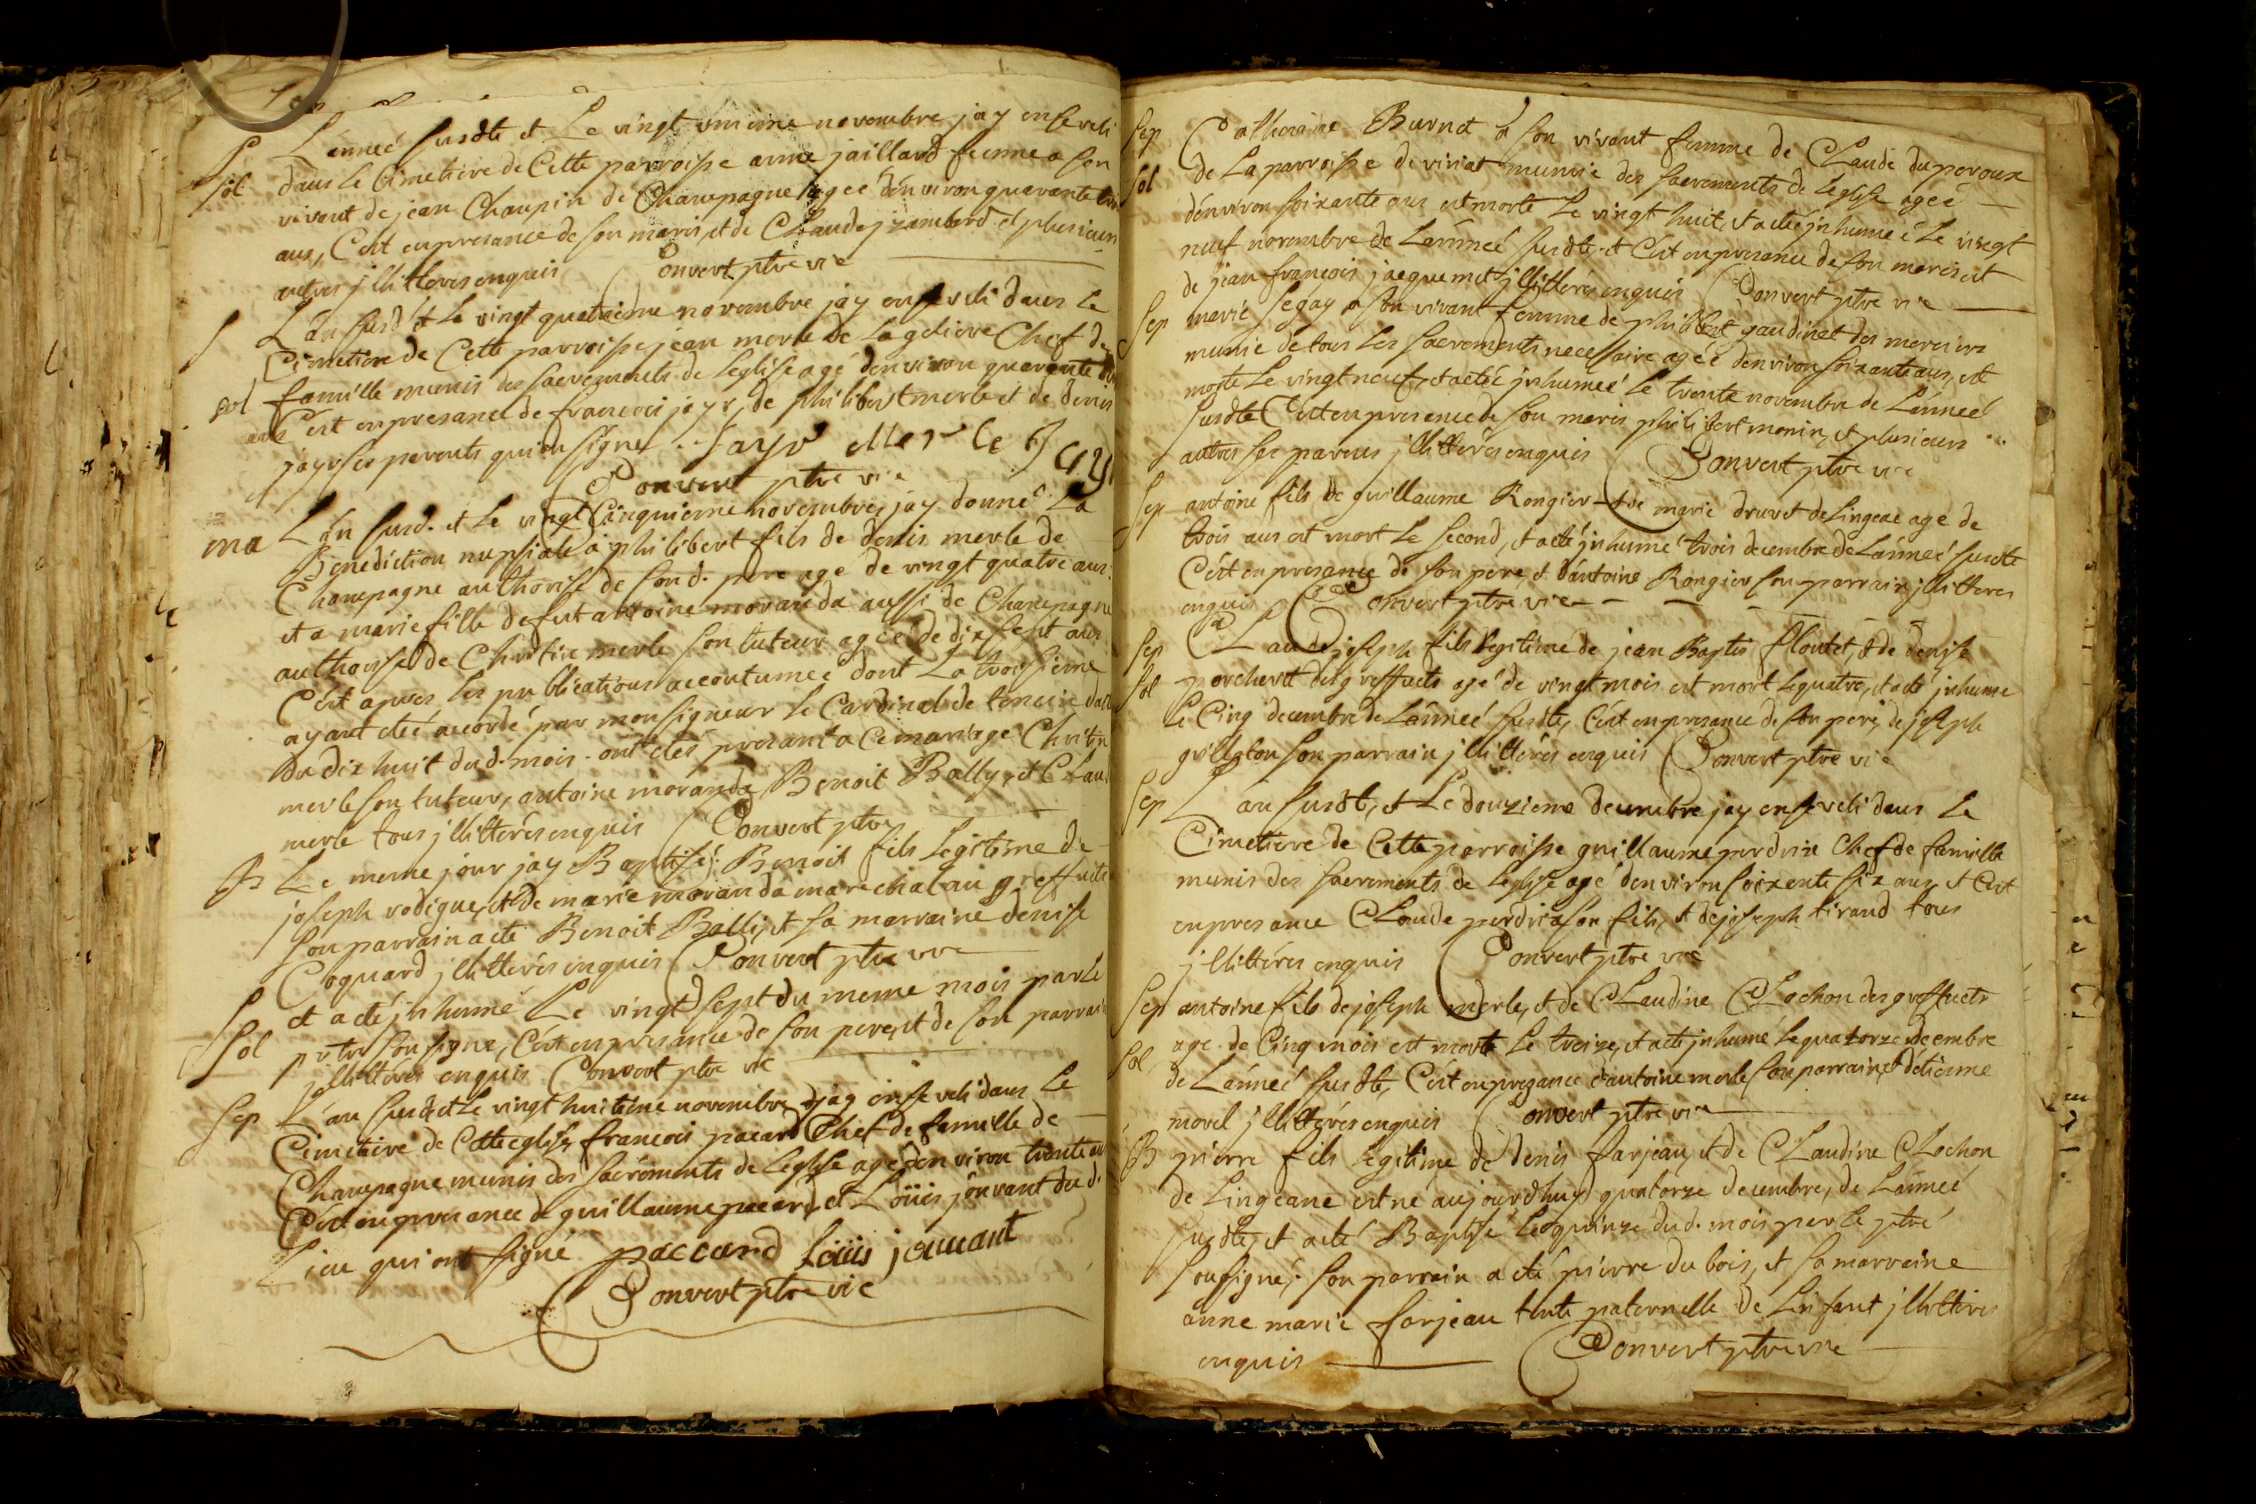 L'année susdte et Le vingt unieme novembre jay enseveli
S
sol
dans le Cimetiere de Cette parroisse anne jaillard femme a son
vivant de jean Chaupin de Champagne agee d'environ quarante
ans, C'est en presance de son maris, et de Claude jzambard et plusieurs
autres jllitteres enquis Convert ptre vic
S
L'an susd et le vingt quatrieme novembre jay enseveli dans le
Cimetiere de Cette parroisse jean merle de la geliere Chef de
sol
famille munis des sacrements de l'eglise agé d'environ quarante
ans C'est en presance de francois jayr, de philibert merle et de denis
jayr ses parents qui ont signe. Jayr Merle
Convert ptre vic
ma
L'an susd. et le vingt Cinquieme novembre, jay donné La
Benediction nupsiale a philibert fils de denis merle de
Champagne authorise de son d. pere age de vingt quatre ans
et a marie fille de fut antoine moranda aussi de Champagne
authorisse de Christin merle son tuteur agee de dix sept ans
C'est apres les publications accoutumee dont La troisieme
ayant eté accordé par monsigneur le Cardinal de tencin
du dix huit dud. mois. ont etés presant a Ce mariage Christin
merle son tuteur, antoine moranda, Benoit Bally, et Claude
merle tous jllitterés enquis Convert ptre
B
Le meme jour jay Baptisé Benoit fils Legitime de
joseph rodigue, et de marie moranda marechal au greffets
son parrain a eté Benoit Balli, et sa marraine denise
Coquard jllitterés enquis Convert ptre vic
S
sol
et a eté jnhumé Le vingt sept du meme mois par le
ptre sousigne, C'est en presance de son pere, et de son parrain
jllitteres enquis Convert ptre vic
Sep
L'an susd. et Le vingt huitieme novembre jay enseveli dans Le
Cimetiere de Cette eglise francois pacard Chef de famille de
Champagne munis des sacrements de L'eglise age d'environ trente ans
C'est en presance de guillaume pacard, et Loüis jouvant dud.
Lieu qui ont signé paccard Loüis jouuant
Convert ptre vic
Sep
Catheraine Burnet a son vivant femme de Claude duperoux
sol
de La parroisse de viriat munie des sacrements de L'eglise agée
d'environ soixante ans est morte le vingt huit, et a eté jnhumée le vingt
neuf novembre de L'année susdte. et C'est en presance de son maris et
de jean françois jacquemet jllitterés enquis Convert ptre vic
Sep
marie segay a son vivant femme de philibert gaudinet des merciers
munie de tous les sacrements necessaire agee d'environ soixante ans, est
morte Le vingt neuf, et a eté jnhumeé le trente novembre de L'anneé
susdte C'est en presence de son maris philibert monin, et plusieurs
autres ses parens jllitterés enquis Convert ptre vic
Sep
antoine fils de guillaume Rongier et de marie druet de Lingeae agé de
trois ans est mort Le second, et a eté jnhumé trois decembre de L'anneé susdte
C'est en presance de son pere, et d'antoine Rongier son parrain jllitteres
enquis Convert ptre vic
Sep
Claude joseph fils Legitime de jean Baptis floutet, et de denise
sol
porcheret des greffets agé de vingt mois est mort Le quatre, et a eté jnhume
Le Cinq decembre de L'anneé susdte, C'est en presance de son pere, de joseph
grillaton son parrain jllitterés enquis Convert ptre vic
Sep
L'an susdt, et Le douzieme decembre jay enseveli dans Le
Cimetiere de Cette parroisse guillaume perdrix Chef de famille
munis des sacrements de L'eglise agé d'environ soixente six ans et C'est
en presance Claude perdrix son fils, et de joseph tirand tous
jllittérés enquis Convert ptre vic
Sep
antoine fils de joseph merle, et de Claudine Clochon des greffets
sol
age de Cinq mois est morte Le treize, et a eté jnhumé Le quatorze decembre
de L'anneé susdte, C'est en presance d'antoine merle son parrain, et d'etienne
morel jllitterés enquis Convert ptre vic
B
pierre fils Legitime de denis farjeau, et de Claudine Clochon
de Lingeane est né aujourdhuy quatorze decembre, de L'anneé
susdte, et a eté Baptisé Le quinze dud. mois par le ptre
sousigné. son parrain a eté pierre du bois, et sa marraine
anne marie farjeau tente paternelle de L'enfant jllitteres
enquis Convert ptre vic